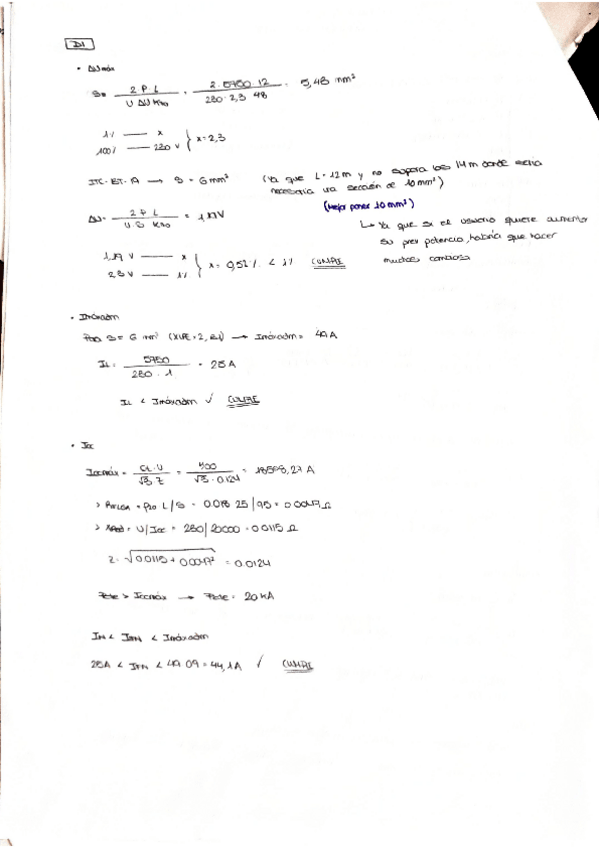 D1
• ΔUmáx
S = 2·P·L / U ΔU K70 = 2·5750·12 / 230·2,3·48 = 5,48 mm²
1% —— x
100% —— 230 V } x = 2,3
ITC-BT-A → S = 6mm² (Ya que L = 12m y no supera los 14m donde sería
necesaria una sección de 10mm²)
(Mejor poner 10mm²)
ΔU = 2·P·L / U·S·K70
↳ Ya que si el usuario quiere aumentar
su prev potencia, habría que hacer
muchos cambios
x
2,3 V —— 1% } x = 0,52% < 1% CUMPLE
• Imáxadm
Para S = 6 mm² (XLPE-2, B1) → Imáxadm = 49A
IL = 5750 / 230·1 = 25A
IL < Imáxadm ✓ CUMPLE
• Icc
Iccmáx = Ct·U / √3·Z = 400 / √3·0.0124 = 18598,27 A
= ρ20 L/S = 0.018·25/95 = 0.0047Ω
= U/Icc = 230/20000 = 0.0115 Ω
Z = √0.0115 + 0.0047² = 0.0124
Pdte > Iccmáx → Pdte = 20kA
IN < Imáxadm
25A < 49·0.9 = 44,1A ✓ CUMPLE